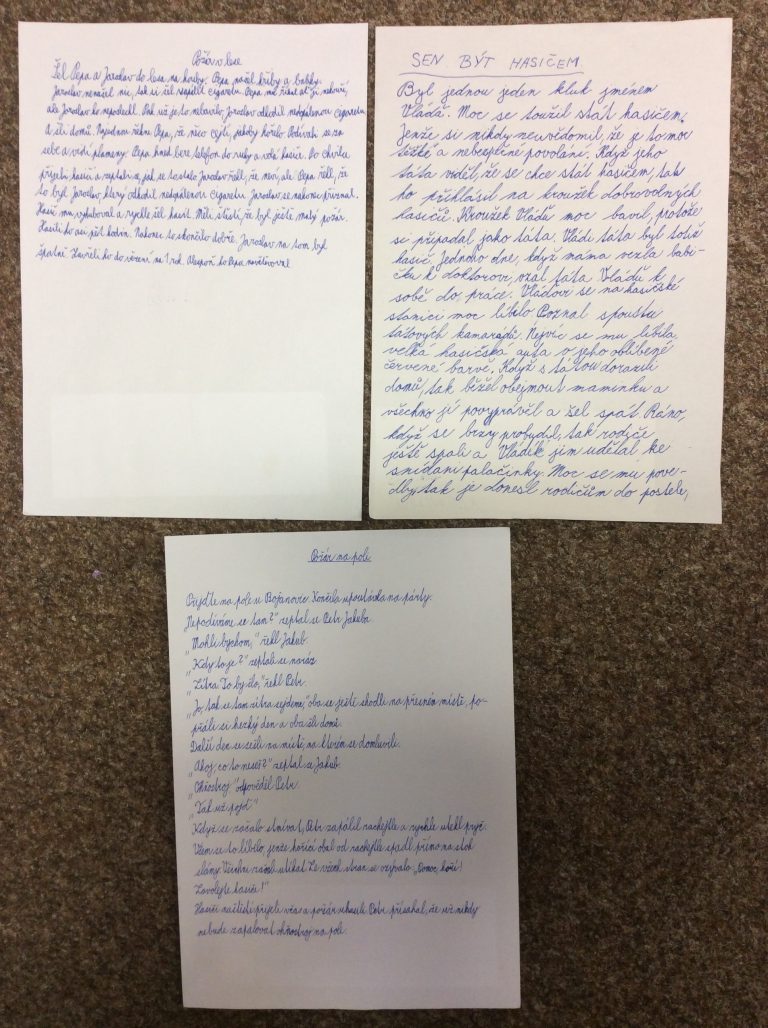 Požár v lese
Šel Pepa a Jaroslav do lesa na houby. Pepa našel hřiby a babky.
Jaroslav nenašel nic, tak si šel zapálit cigaretu. Pepa mu říkal ať ji nekouří,
ale Jaroslav ho neposlechl. Pak už je to nebavilo, Jaroslav odhodil nedopálenou cigaretu
a šli domů. Najednou řekne Pepa, že něco cítí, jakoby hořelo. Podívali se za
sebe a vidí plameny. Pepa hned bere telefon do ruky a volá hasiče. Po chvilce
přijeli hasiči a zeptali se, jak se to stalo. Jaroslav řekl, že neví, ale Pepa řekl, že
to byl Jaroslav, který odhodil nedopálenou cigaretu. Jaroslav se nakonec přiznal.
Hasič mu vyhuboval a rychle šel hasit. Měli štěstí, že byl ještě malý požár.
Hasili to asi pět hodin. Nakonec to skončilo dobře. Jaroslav na tom byl
špatně. Zavřeli ho do vězení na 1 rok. Alespoň ho Pepa navštěvoval
SEN BÝT HASIČEM
Byl jednou jeden kluk jménem
Vláďa. Moc se toužil stát hasičem.
Jenže si nikdy neuvědomil, že je to moc
těžké a nebezpečné povolání. Když jeho
táta viděl, že se chce stát hasičem, tak
ho přihlásil na kroužek dobrovolných
hasičů. Kroužek Vláďu moc bavil, protože
si připadal jako táta. Vládi táta byl totiž
hasič. Jednoho dne, když máma vezla babi-
čku k doktorovi, vzal táta Vláďu k
sobě do práce. Vláďovi se na hasičské
stanici moc líbilo. Poznal spoustu
tátových kamarádů. Nejvíc se mu líbila
velká hasičská auta v jeho oblíbené
červené barvě. Když s tátou dorazili
domů, tak běžel obejmout maminku a
všechno jí povyprávěl a šel spát. Ráno,
když se brzy probudil, tak rodiče
ještě spali a Vládík jim udělal ke
snídani palačinky. Moc se mu pove-
dly, tak je donesl rodičům do postele,
Požár na poli
Přijďte na pole u Bojanovic. Končila upoutávka na párty.
„Nepodíváme se tam?" zeptal se Petr Jakuba.
„Mohli bychom," řekl Jakub.
„Kdy to je?" zeptali se naráz.
„Zítra. To by šlo," řekl Petr.
„Jo, tak se tam zítra sejdeme," oba se ještě shodli na přesném místě, po-
přáli si hezký den a oba šli domů.
Další den se sešli na místě, na kterém se domluvili.
„Ahoj, co to neseš?" zeptal se Jakub.
„Ohňostroj" odpověděl Petr.
„Tak už pojď"
Když se začalo stmívat, Petr zapálil rachejtle a rychle utekl pryč.
Všem se to líbilo, jenže hořící obal od rachejtle spadl přímo na stoh
slámy. Všichni začali utíkat. Ze všech stran se ozývalo: „Pomoc, hoří!
Zavolejte hasiče!"
Hasiči naštěstí přijeli včas a požár uhasili. Petr přísahal, že už nikdy
nebude zapalovat ohňostroj na poli.